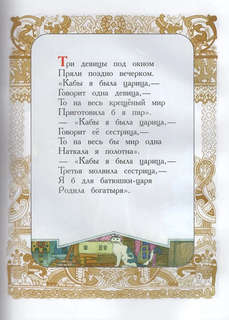 Три девицы под окном
Пряли поздно вечерком.
«Кабы я была царица,—
Говорит одна девица,—
То на весь крещёный мир
Приготовила б я пир».
— «Кабы я была царица,—
Говорит её сестрица,—
То на весь бы мир одна
Наткала я полотна».
— «Кабы я была царица,—
Третья молвила сестрица,—
Я б для батюшки-царя
Родила богатыря».